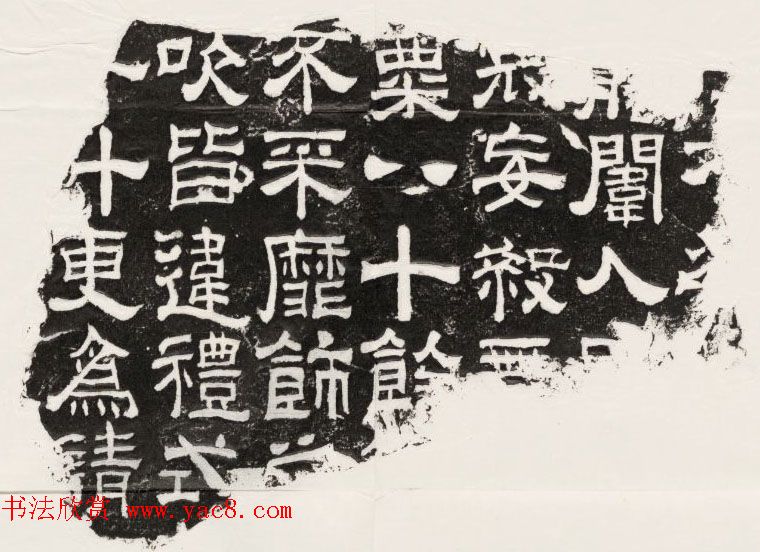 闈人
妄殺
粟八十餘
不采靡飾
吹皆違禮式
十更爲清
书法欣赏 www.yac8.com